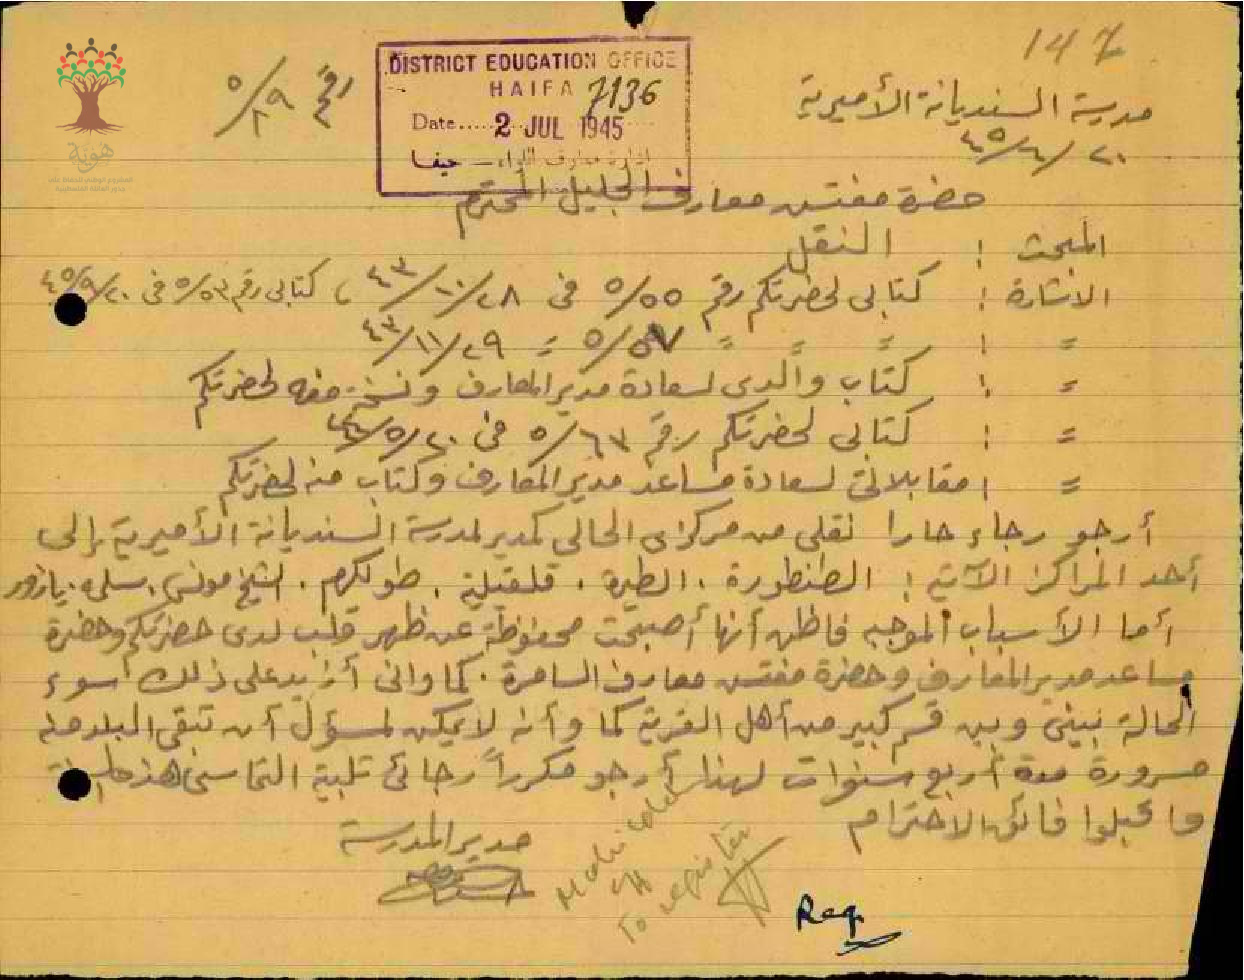 147
مدرسة السنديانة الأميرية
٢٠/٦/٤٥
رقم ٥/٢٩
DISTRICT EDUCATION OFFICE
HAIFA 7136
Date..... 2 JUL 1945
ادارة معارف اللواء - حيفا
هوية
حضرة مفتش معارف الجليل المحترم
المبحث : النقل
الاشارة : كتابي لحضرتكم رقم ٥/٥٥ في ٢٨/١٠/٤٣ ، كتابي رقم ٥/٥٣ في
= : = = = ٥/٥٧ = ٢٩/١١/٤٣
= : كتاب والدي لسعادة مدير المعارف ونسخة منه لحضرتكم
= : كتابي لحضرتكم رقم ٥/٦٣ في ٢٠/٥
= : مقابلاتي لسعادة مساعد مدير المعارف وكتاب منه لحضرتكم
أرجو رجاء حارا نقلي من مركزي الحالي كمدير لمدرسة السنديانة الأميرية إلى
أحد المراكز الآتية : الطنطورة . الطيرة . قلقيلية . طولكرم . الشيخ مونس . سلمه . يازور
أما الأسباب الموجبه فاظن أنها أصبحت محفوظة عن ظهر قلب لدى حضرتكم وحضرة
مساعد مدير المعارف وحضرة مفتش معارف السامرة . كما واني أزيد على ذلك أسوء
الحالة بيني وبين قسم كبير من أهل القرية كما وأنه لا يمكن لمسؤل أن تبقى البلد منه
مسرورة مدة أربع سنوات لهذا أرجو مكرراً رجائي تلبية التماسي هذه
واقبلوا فائق الاحترام
مدير المدرسة
To register
Reg.